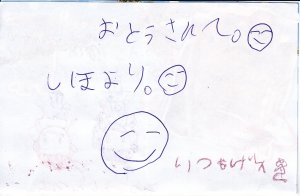 おとうさんへ。
しほより。
いつもげん